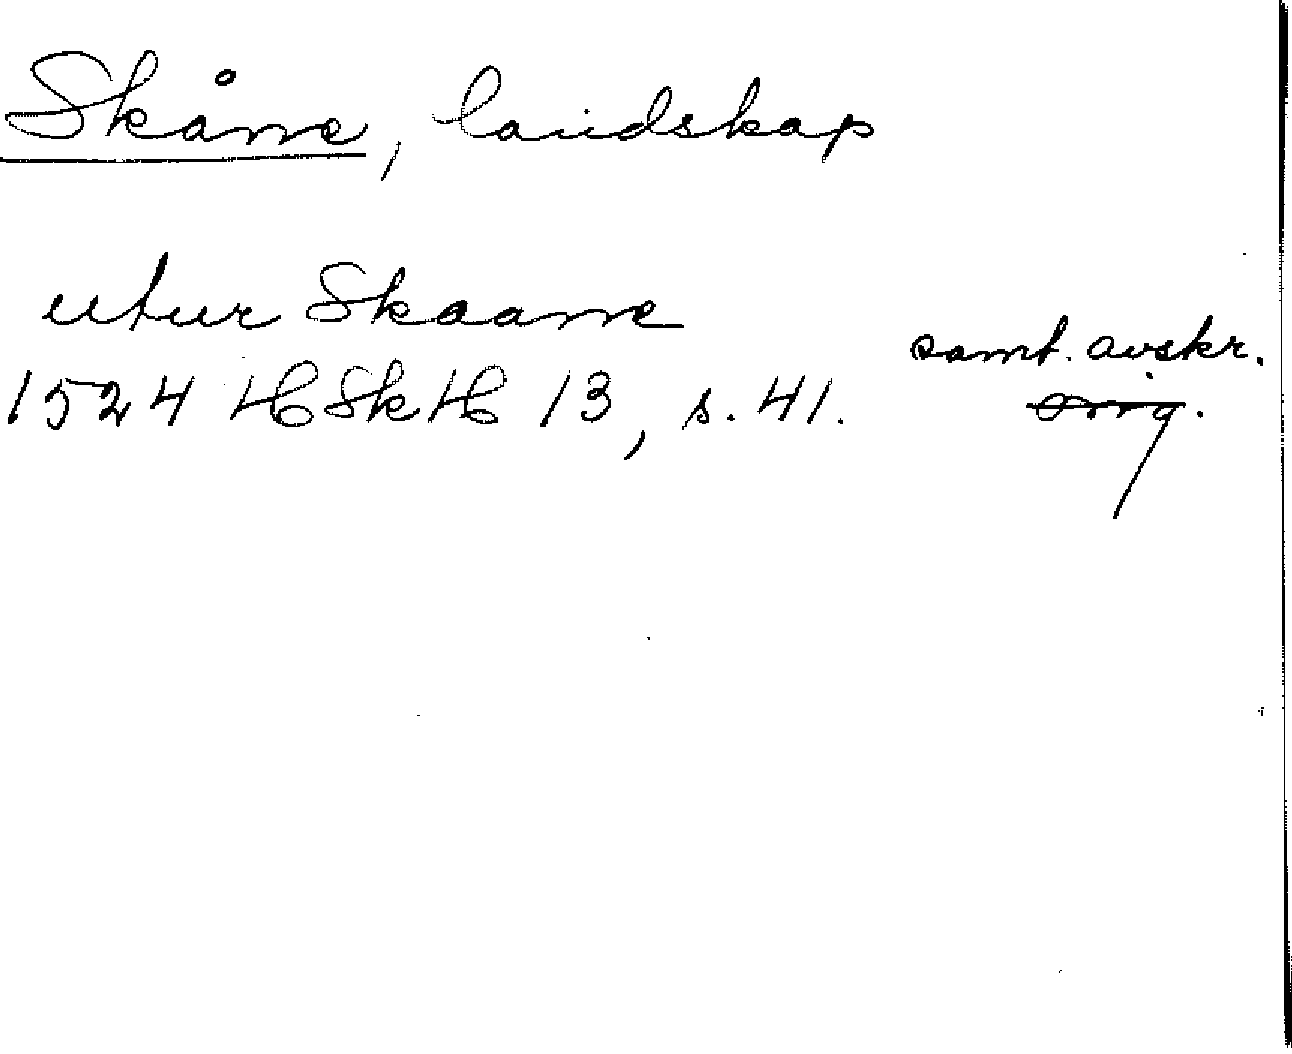 Skåne, landskap
utur Skaane
samt. avskr.
1524 HSkH 13, s. 41.
orig.